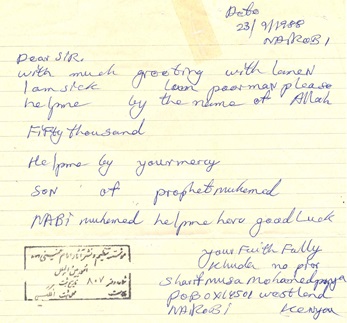 Date
23/9/1988
NAIROBI
Dear SIR.
with much greeting with
I am sick I am poor man please
helpme by the name of Allah
Fifty thousand
Helpme by your mercy
SON of prophet muhemed
NABi muhemed helpme have good Luck
your Faith Fally
Khuda no
Sharif musa Mohamed
POBOX westland
NAIROBI Kenya
۸۰۷